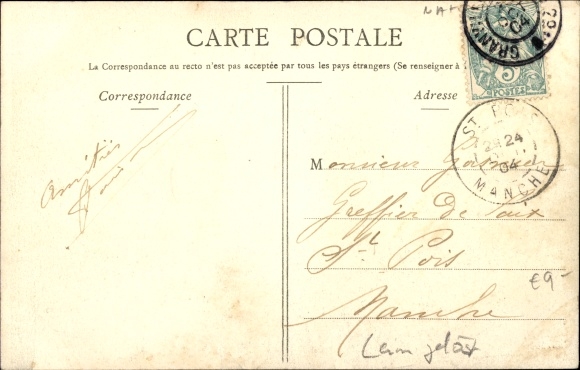 CARTE POSTALE
La Correspondance au recto n'est pas acceptée par tous les pays étrangers (Se renseigner à
Correspondance
Adresse
GRAN
04
5
POSTES
ST POIS
24
04
MANCHE
Amitiés
Monsieur
Greffier de Paix
St Pois
Manche
€9-